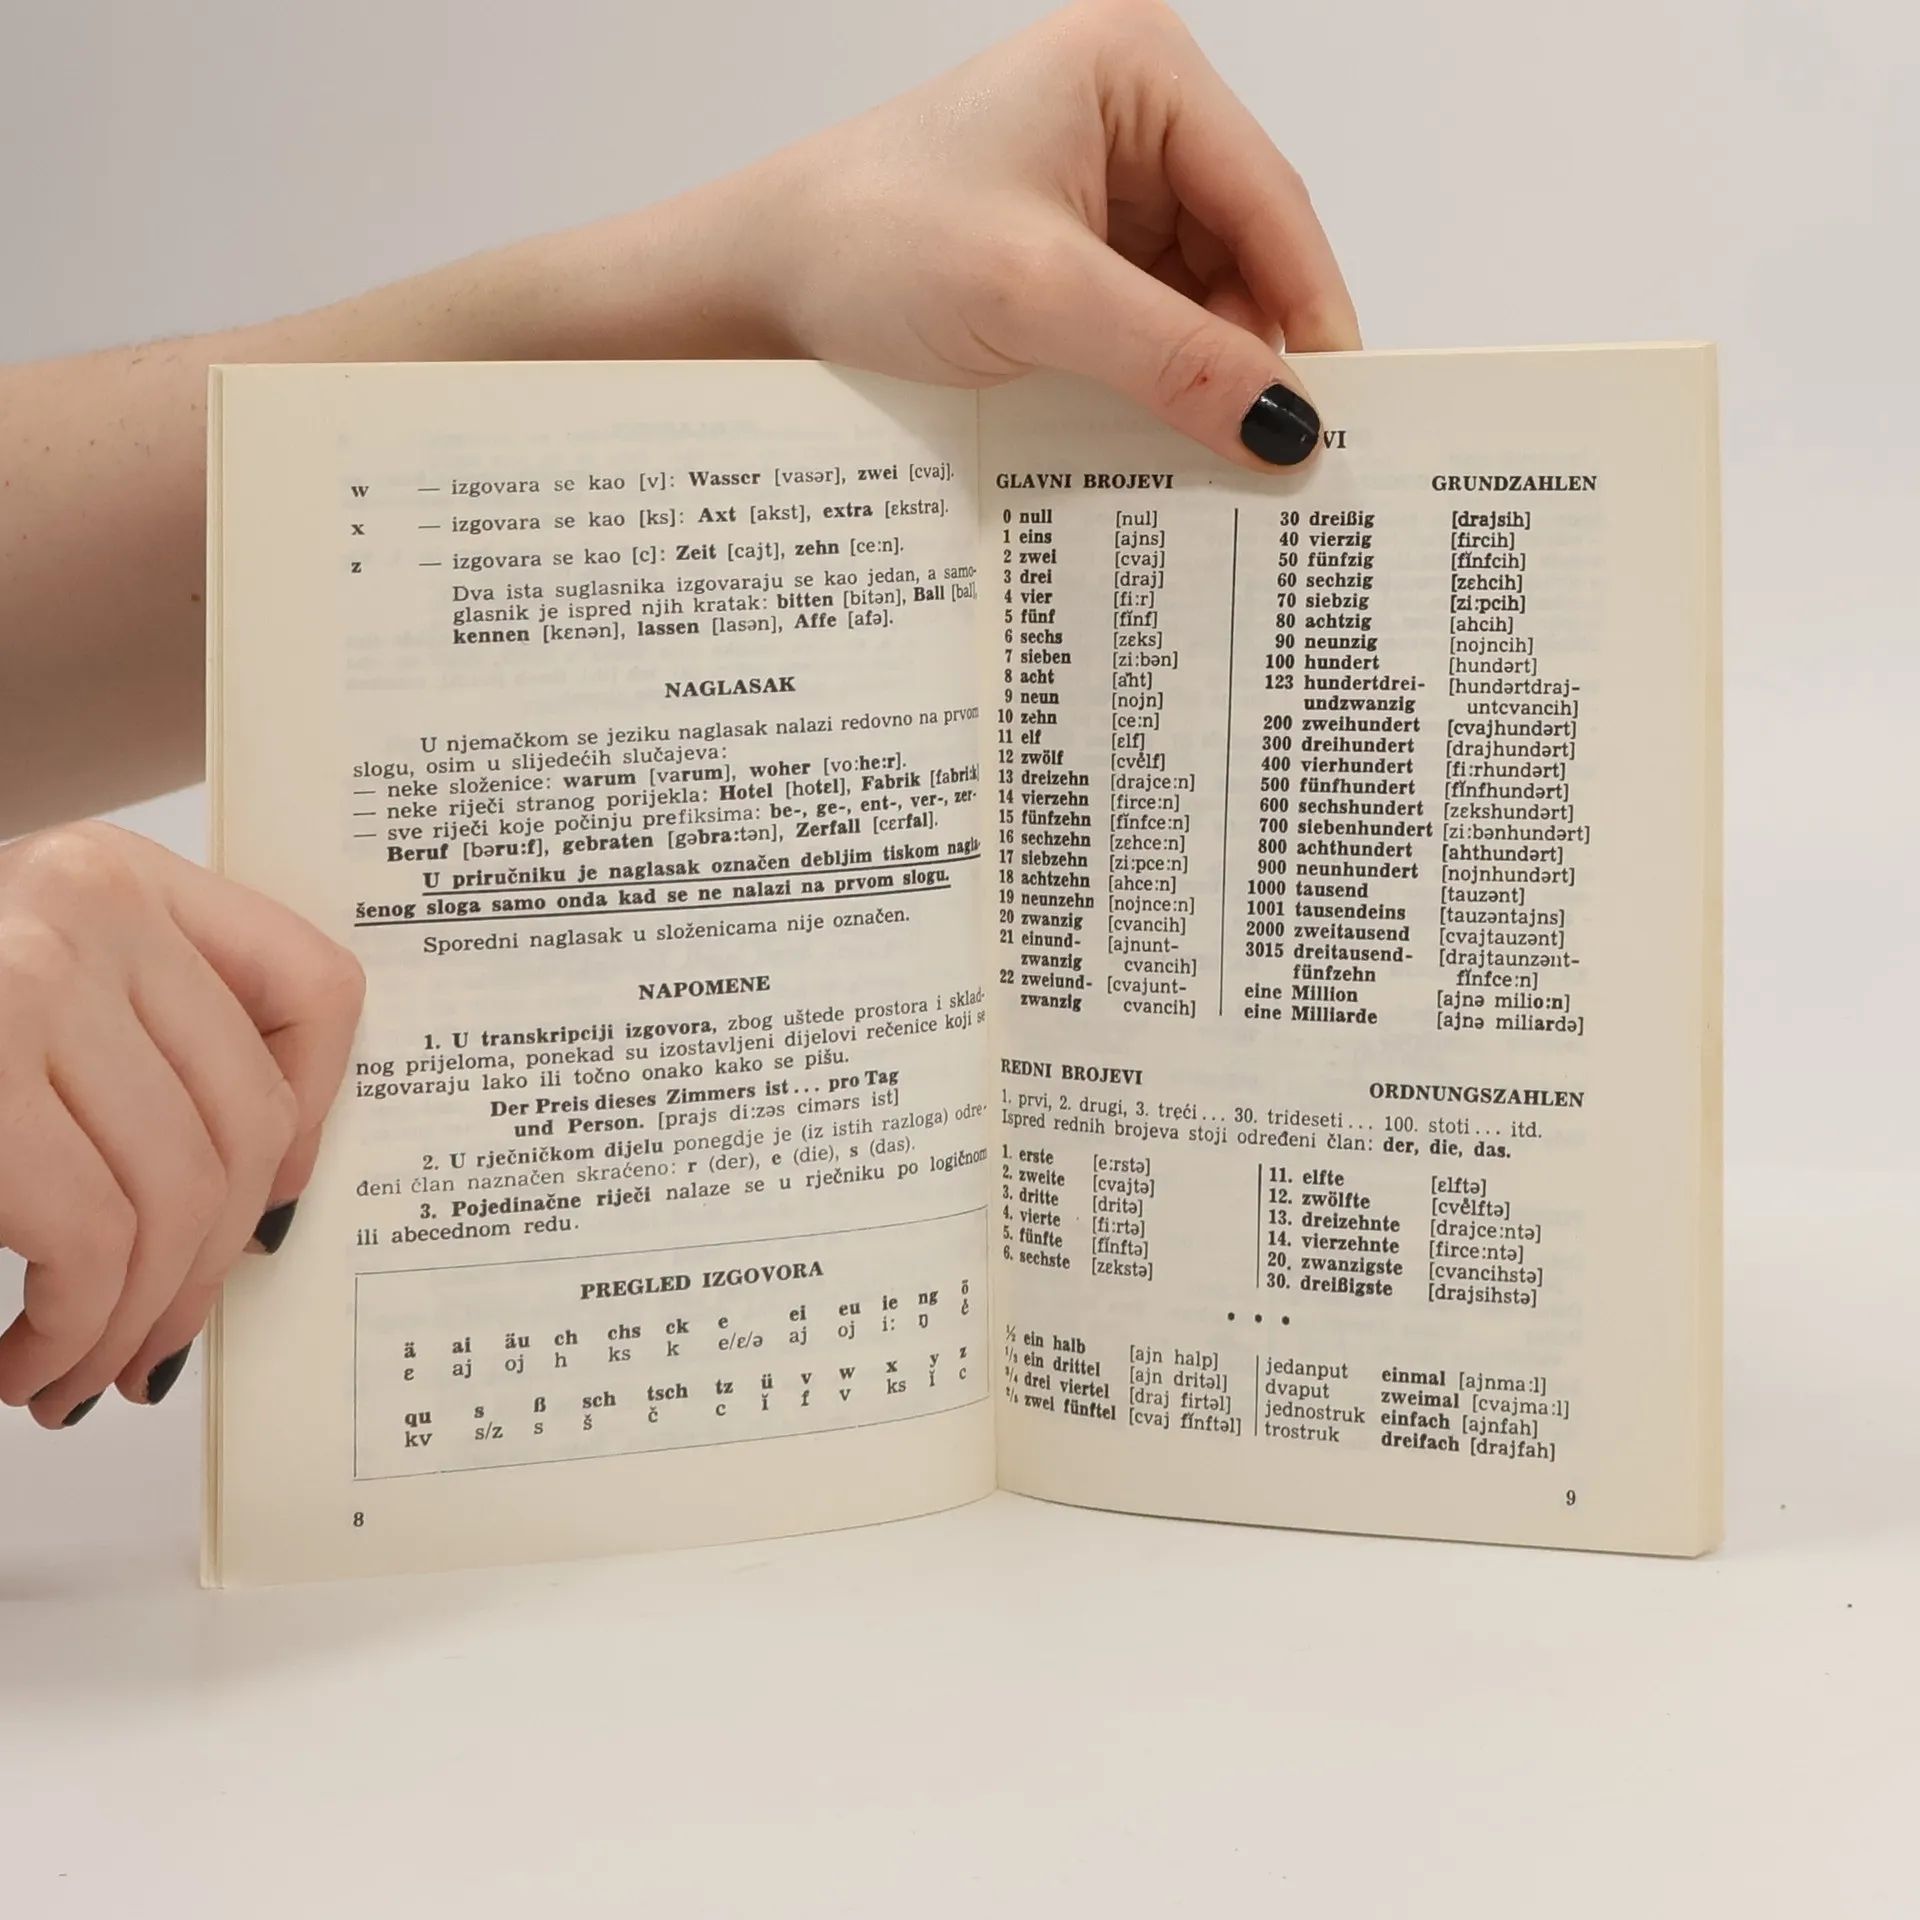 w — izgovara se kao [v]: Wasser [vasər], zwei [cvaj].
x — izgovara se kao [ks]: Axt [akst], extra [ɛkstra].
z — izgovara se kao [c]: Zeit [cajt], zehn [ce:n].
Dva ista suglasnika izgovaraju se kao jedan, a samo-
glasnik je ispred njih kratak: bitten [bitən], Ball [bal],
kennen [kɛnən], lassen [lasən], Affe [afə].
NAGLASAK
U njemačkom se jeziku naglasak nalazi redovno na prvom
slogu, osim u slijedećih slučajeva:
— neke složenice: warum [varum], woher [vo:he:r].
— neke riječi stranog porijekla: Hotel [hotɛl], Fabrik [fabri:k]
— sve riječi koje počinju prefiksima: be-, ge-, ent-, ver-, zer-
Beruf [bəru:f], gebraten [gəbra:tən], Zerfall [cɛrfal].
U priručniku je naglasak označen debljim tiskom nagla-
šenog sloga samo onda kad se ne nalazi na prvom slogu.
Sporedni naglasak u složenicama nije označen.
NAPOMENE
1. U transkripciji izgovora, zbog uštede prostora i sklad-
nog prijeloma, ponekad su izostavljeni dijelovi rečenice koji se
izgovaraju lako ili točno onako kako se pišu.
Der Preis dieses Zimmers ist... pro Tag
und Person. [prajs di:zəs cimərs ist]
2. U rječničkom dijelu ponegdje je (iz istih razloga) odre-
đeni član naznačen skraćeno: r (der), e (die), s (das).
3. Pojedinačne riječi nalaze se u rječniku po logičnom
ili abecednom redu.
PREGLED IZGOVORA
ä ai äu ch chs ck e ei eu ie ng ö
ɛ aj oj h ks k e/ɛ/ə aj oj i: ŋ ě
qu s ß sch tsch tz ü v w x y z
kv s/z s š č c ǐ f v ks ǐ c
8
VI
GLAVNI BROJEVI GRUNDZAHLEN
0 null [nul]
1 eins [ajns]
2 zwei [cvaj]
3 drei [draj]
4 vier [fi:r]
5 fünf [fǐnf]
6 sechs [zɛks]
7 sieben [zi:bən]
8 acht [aht]
9 neun [nojn]
10 zehn [ce:n]
11 elf [ɛlf]
12 zwölf [cvělf]
13 dreizehn [drajce:n]
14 vierzehn [firce:n]
15 fünfzehn [fǐnfce:n]
16 sechzehn [zɛhce:n]
17 siebzehn [zi:pce:n]
18 achtzehn [ahce:n]
19 neunzehn [nojnce:n]
20 zwanzig [cvancih]
21 einund- [ajnunt-
zwanzig cvancih]
22 zweiund- [cvajunt-
zwanzig cvancih]
30 dreißig [drajsih]
40 vierzig [fircih]
50 fünfzig [fǐnfcih]
60 sechzig [zɛhcih]
70 siebzig [zi:pcih]
80 achtzig [ahcih]
90 neunzig [nojncih]
100 hundert [hundərt]
123 hundertdrei- [hundərtdraj-
undzwanzig untcvancih]
200 zweihundert [cvajhundərt]
300 dreihundert [drajhundərt]
400 vierhundert [fi:rhundərt]
500 fünfhundert [fǐnfhundərt]
600 sechshundert [zɛkshundərt]
700 siebenhundert [zi:bənhundərt]
800 achthundert [ahthundərt]
900 neunhundert [nojnhundərt]
1000 tausend [tauzənt]
1001 tausendeins [tauzəntajns]
2000 zweitausend [cvajtauzənt]
3015 dreitausend- [drajtaunzənt-
fünfzehn fǐnfce:n]
eine Million [ajnə milio:n]
eine Milliarde [ajnə miliardə]
REDNI BROJEVI ORDNUNGSZAHLEN
1. prvi, 2. drugi, 3. treći... 30. trideseti... 100. stoti... itd.
Ispred rednih brojeva stoji određeni član: der, die, das.
1. erste [e:rstə]
2. zweite [cvajtə]
3. dritte [dritə]
4. vierte [fi:rtə]
5. fünfte [fǐnftə]
6. sechste [zɛkstə]
11. elfte [ɛlftə]
12. zwölfte [cvělftə]
13. dreizehnte [drajce:ntə]
14. vierzehnte [firce:ntə]
20. zwanzigste [cvancihstə]
30. dreißigste [drajsihstə]
• • •
½ ein halb [ajn halp]
1/3 ein drittel [ajn dritəl]
3/4 drei viertel [draj firtəl]
2/5 zwei fünftel [cvaj fǐnftəl]
jedanput einmal [ajnma:l]
dvaput zweimal [cvajma:l]
jednostruk einfach [ajnfah]
trostruk dreifach [drajfah]
9